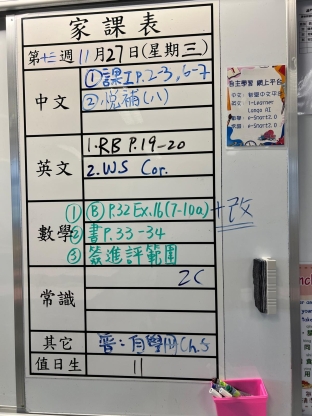 家課表
第十三週11月27日(星期三)
中文
①課工P.2-3,6-7
②悅補(八)
英文
1.RB P.19-20
2.WS Cor.
數學
①Ⓑ P.32 Ex.16(7-10a)+改
②書P.33-34
③簽進評範圍
常識
2C
其它
普:自學冊Ch.5
值日生
11
自主學習 網上平台
i-Learner
e-Start2.0
e-Start2.0